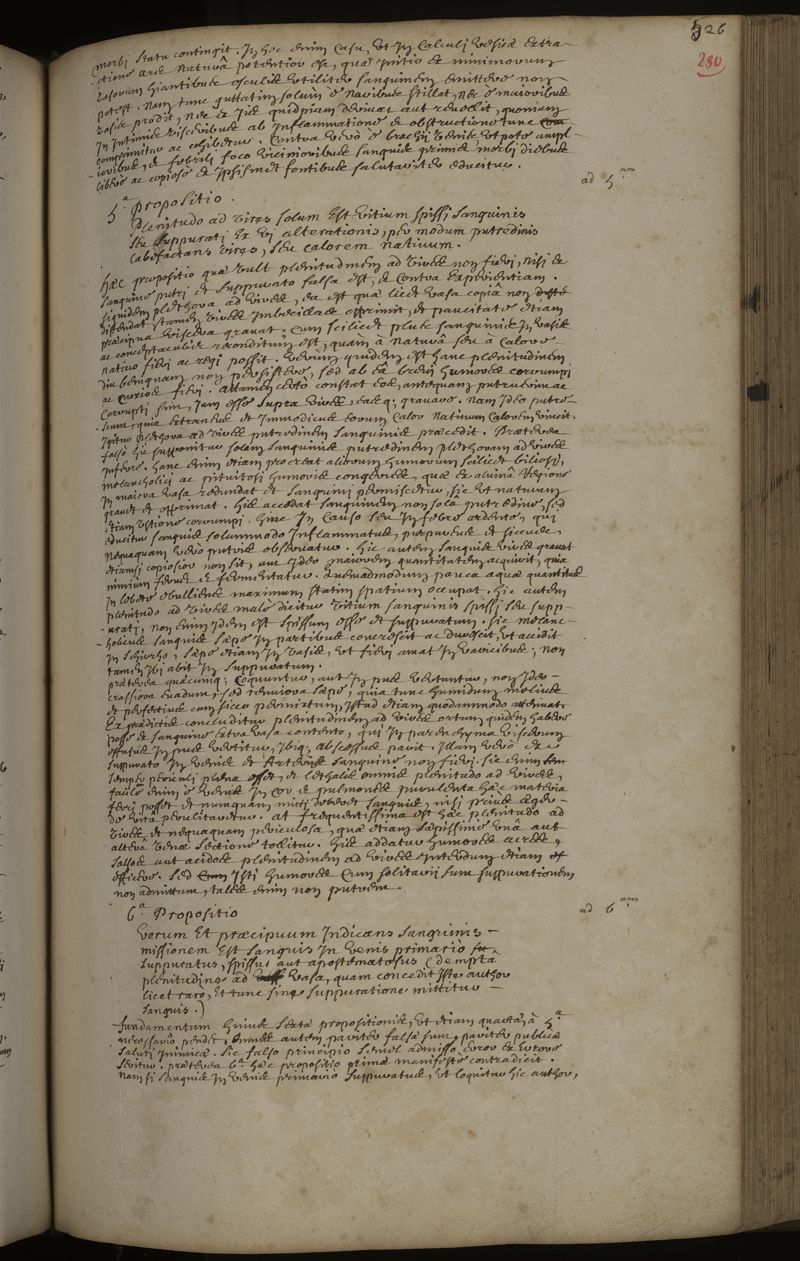 326
280
morbi statu contingit. In hoc enim casu, ut in calculj vesicae extra-
ctione arte naturâ potentior est, qua initio et minimorum
vasorum hiantibus osculis utiliter sanguinem emittere non
potest. nam tunc guttatim solum è naribus stillat, nec è maioribus
vasis prodit, nec ex ijs quidpiam derivat aut revellit, quoniam
in intimis visceribus ab inflammatione et obstructione tunc
comprimitur ac cohibetur. Contra vero è brachij venis utpote ampl-
ioribus, et febrili foco vicinioribus sanguis primis morbi diebus
libere ac copiose et ipsismet fontibus salutariter educitur.
ad 5am
5a propositio.
Plenitudo ad vires solum est vitium spissi sanguinis
seu suppurati ex vi alterationis, per modum putredinis
labefactans vires, seu calorem nativum.
Haec propositio quae vult plenitudinem ad vires non fieri, nisi ex
sanguine putri et suppurato falsa est, et contra experientiam.
siquidem plethora ad vires, ea est quae licet vasa copiâ non
distendat tamen vires imbecillas opprimit, et paucitate etiam
praecipua viscera gravat. Cum scilicet plus sanguinis in vasis
ac conceptaculis reconditum est, quam a naturâ seu a calore
nativo fieri ac regi possit. verum quidem est hanc plenitudinem
diu benignam non persistere, sed ab ea brevi humores corrumpi
ac fieri. Attamen certo constat eos, antequam putrueriut ac
corrupti sint, jam esse supra vires, easq; gravare. nam ideo putre-
sciunt quia extraneus et immodicus eorum calor nativum calorem vincit.
Igitur plethora ad vires putredinem sanguinis praecedit. Praeterea
falso hic supponitur solam sanguinis putredinem plethoram ad vires
inferre. hanc enim etiam procreat aliorum humorum scilicet biliosi,
melancholici ac pituitosi humoris congeries, quae ex alvina regione
in maiora vasa redundat et sanguinj permiscetur, sic ut naturam
gravet et opprimat. His accedat sanguinem non sola putredine, sed
etiam ustione corrumpi. hinc in causo seu in febre ardente, qui
educitur sanguis solummodo inflammatus, purpureus et siccus,
nequaquam vero putris observatur. hic autem sanguis vires gravat
etiamsi copiosior non sit, aut ideo maiorem quantitatem acquirit, quia
nimium fervet et fermentatur. Quemadmodum pauca aquae quantitas
in lebete ebulliens maximum statim spatium occupat. Hic autem
plenitudo ad vires male dicitur vitium sanguinis spissi seu supp-
urati, non enim idem est spissum esse et suppuratum. sic melanc-
holicus sanguis saepe in partibus concrescit ac durescit, ut accidit
in schirrho, saepe etiam in vasis, ut fieri amat in varicibus, non
tamen ibi abit in suppuratum.
praeterea quaecumq; coquuntur, aut in pus vertuntur, non ideo
crassiora evadunt, sed tenuiora saepe, quia tunc humidum molius
et perfectius cum sicco permixtum, istud etiam quodammodo attenuat.
Ex praedictis concluditur plenitudinem ad vires ortum quidem habere
posse ex sanguine extra vasa contento, qui in parenchyma viscerum
effusus in pus vertitur, ibiq; abscessus parit. Illam vero ex
suppurato in venis et arteriis sanguine non fieri. sic enim sem
semper periculi plena esset, et lethalis omnis plenitudo ad vires,
facile enim è venis in cor et pulmones purulenta haec materia
ferri posset et numquam mitti deberet sanguis, nisi prius aegro
de vita periclitaretur. At frequentissima est haec plenitudo ad
vires et nequaquam periculosa, quae etiam saepissime una aut
altera venae sectione tollitur. His addatur humores acres,
salsos aut acidos plenitudinem ad vires interdum etiam
efficere. sed isti humores cum solitarij sunt suppurationem
non admittunt, tales enim non putrent.
ad 6am
6a Propositio
verum et praecipuum indicans sanguinis
missionem est sanguis in venis primario
suppuratus, spissus aut apostematosus (dempta
plenitudine ad vasa, quam concedit iste author
licet raro, et tunc sine suppuratione mittitur
sanguis.)
fundamentum huius sextae propositionis, ut etiam quartae, à 5a
necessario pendet, omnes autem pariter falsae sunt, pariter publicae
saluti inimicae. sic falso principio semel admisso error ex errore
seritur. praeterea 6a haec propositio primae manifeste contradicit.
nam si sanguis in venis primario suppuratus, ut loquitur hic author,